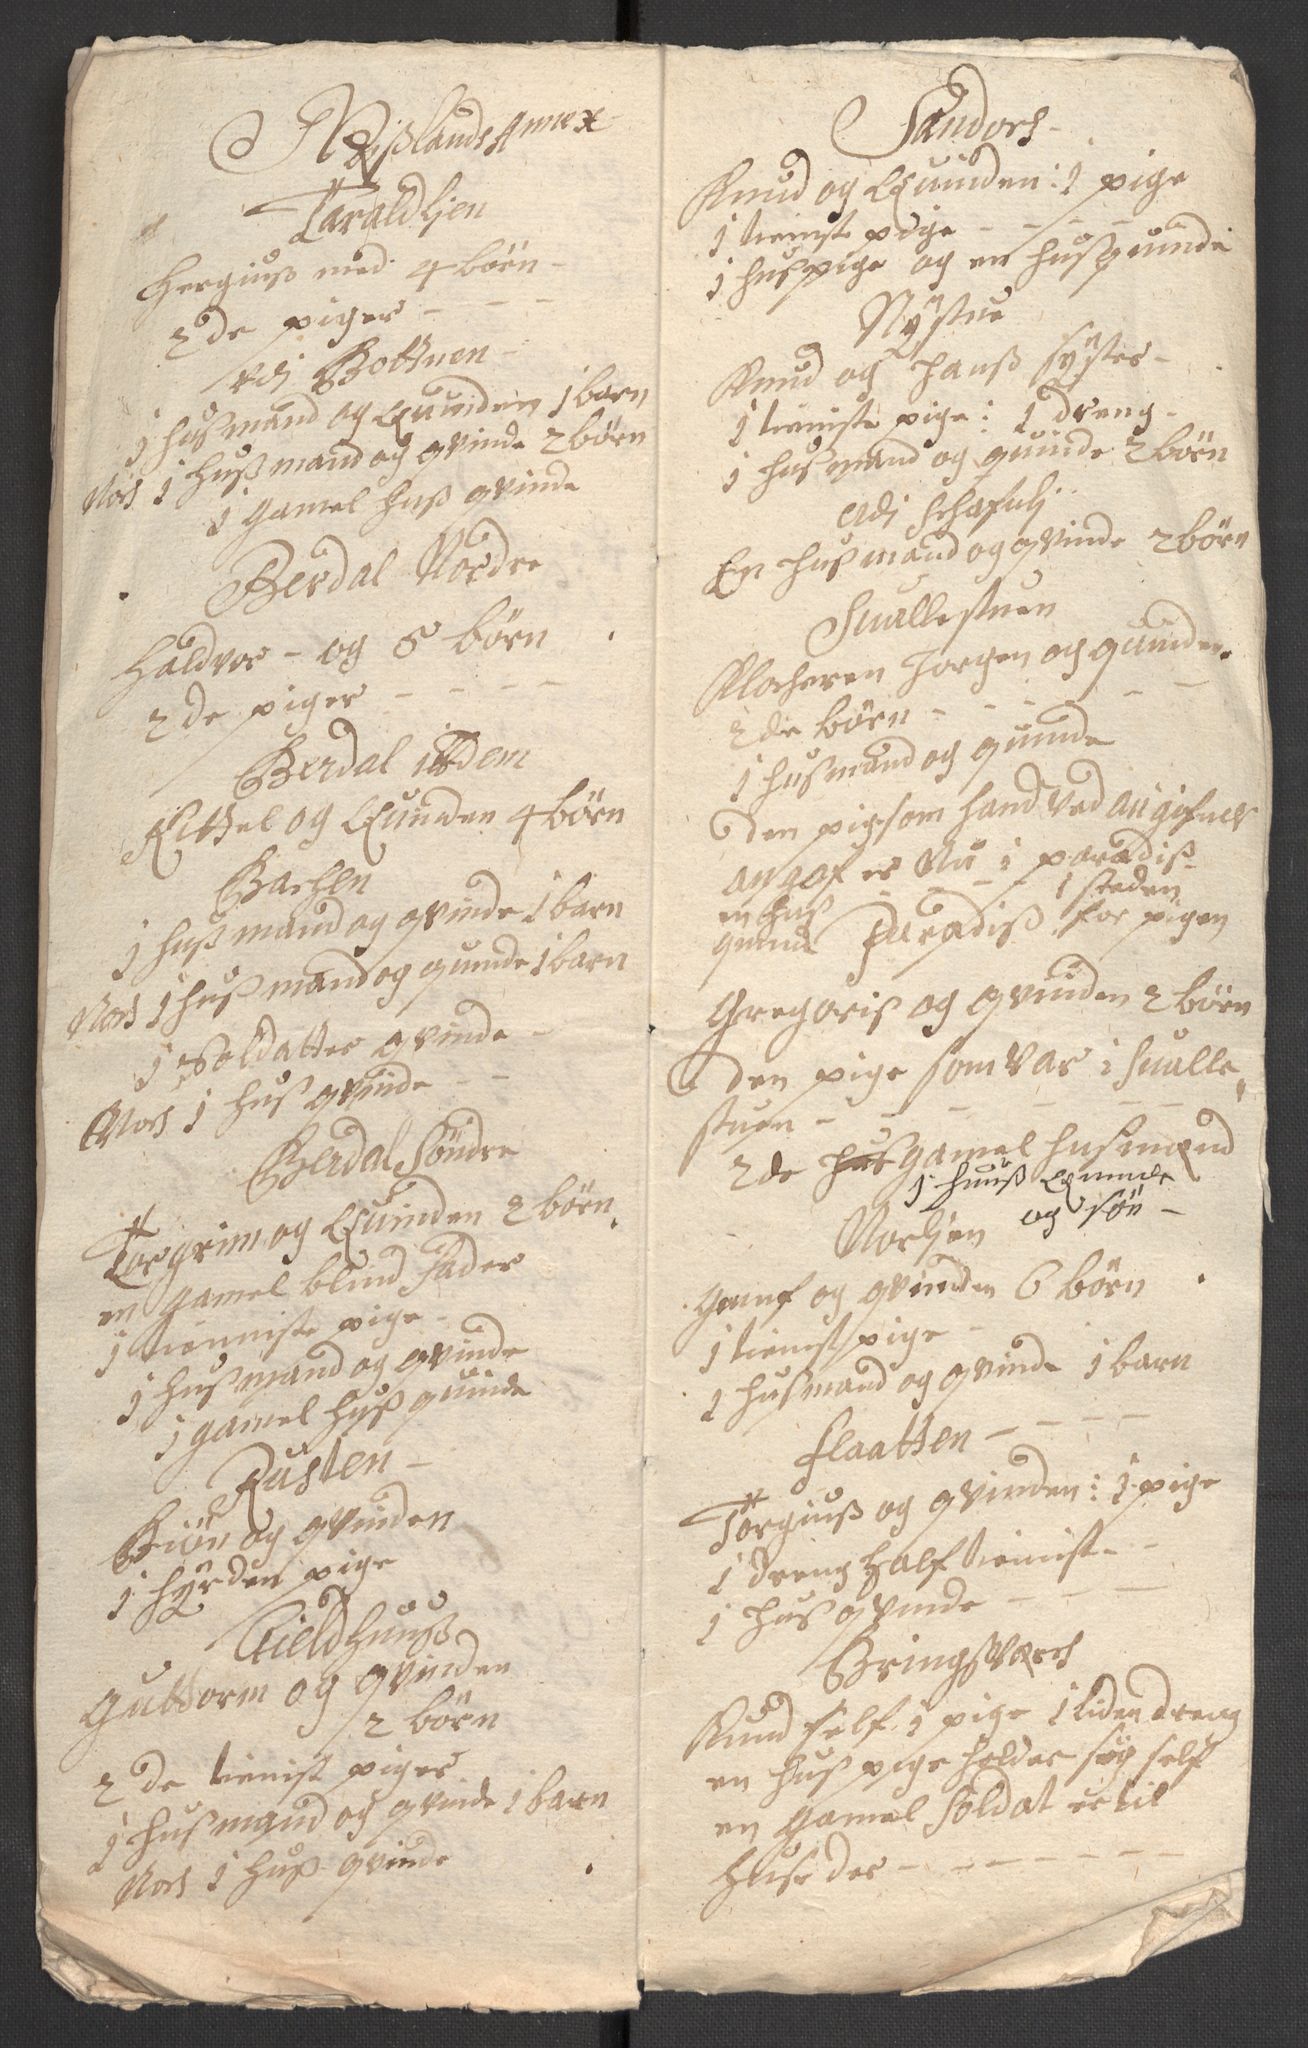 Nißlands Annex
Taraldlien
Hergiuß med 4 børn -
2 de piger - - -
udj Bottnen -
1 husmand og Quinden 1 barn
Noch 1 huß mand og qvinde 2 børn
1 gamel huß qvinde
Berdal Nordre
Haldvor - og 5 børn
2 de piger - - - -
Berdal ibdem
Kittel og Quinden 4 børn
Bachen
1 huß mand og qvinde 1 barn
Noch 1 huß mand og quinde 1 barn
1 Soldatter qvinde -
Noch 1 huß qvinde - -
Berdal Søndre
Torgrim og Quinden 2 børn
en gamel blind Fader
1 tienniste pige -
1 hußmand og qvinde
1 gamel huß quinde
Rusten -
Biøn og qvinden
1 hyrden pige
Kieldhuuß
Guttorm og qvinden
2 børn
2 de tienist piger
1 husmand og qvinde 1 barn
Noch 1 huß qvinde
Sandoch -
Knud og Quinden : 1 pige
1 tieniste pige - - - -
1 huspige og en huß quinde
Nÿstue
Knud og hanß sÿster -
1 tieniste pige : 1 dreng -
1 husmand og quinde 2 børn
udj Schafulj
En husmand og qvinde 2 børn
Suallestuen
Klocheren Jorgen och quinden
2 de børn - - - - - -
1 husmand og quinde
Den pige som hand ved angifuelse
angaf er Nu i paradiß
en huß quinde Paradiß i steden for pigen
Gregoris og qvinden 2 børn
den pige som var i Sualle
stuen - - - - - -
2 de gamel husmænd
1 huuß Quinde
og søn -
Norljen
Gunuf og qvinden 6 børn
1 tienist pige -
1 husmand og qvinde 1 barn
Flaatten - - - -
Torgiuß og qvinden : 1 pige
1 dreng half tieniste -
1 huß qvinde - - -
Bringsverch
Knud self 1 pige 1 liden dreng
en huß pige holder sig self
en gamel Soldat er til
huse der - - - - - - -